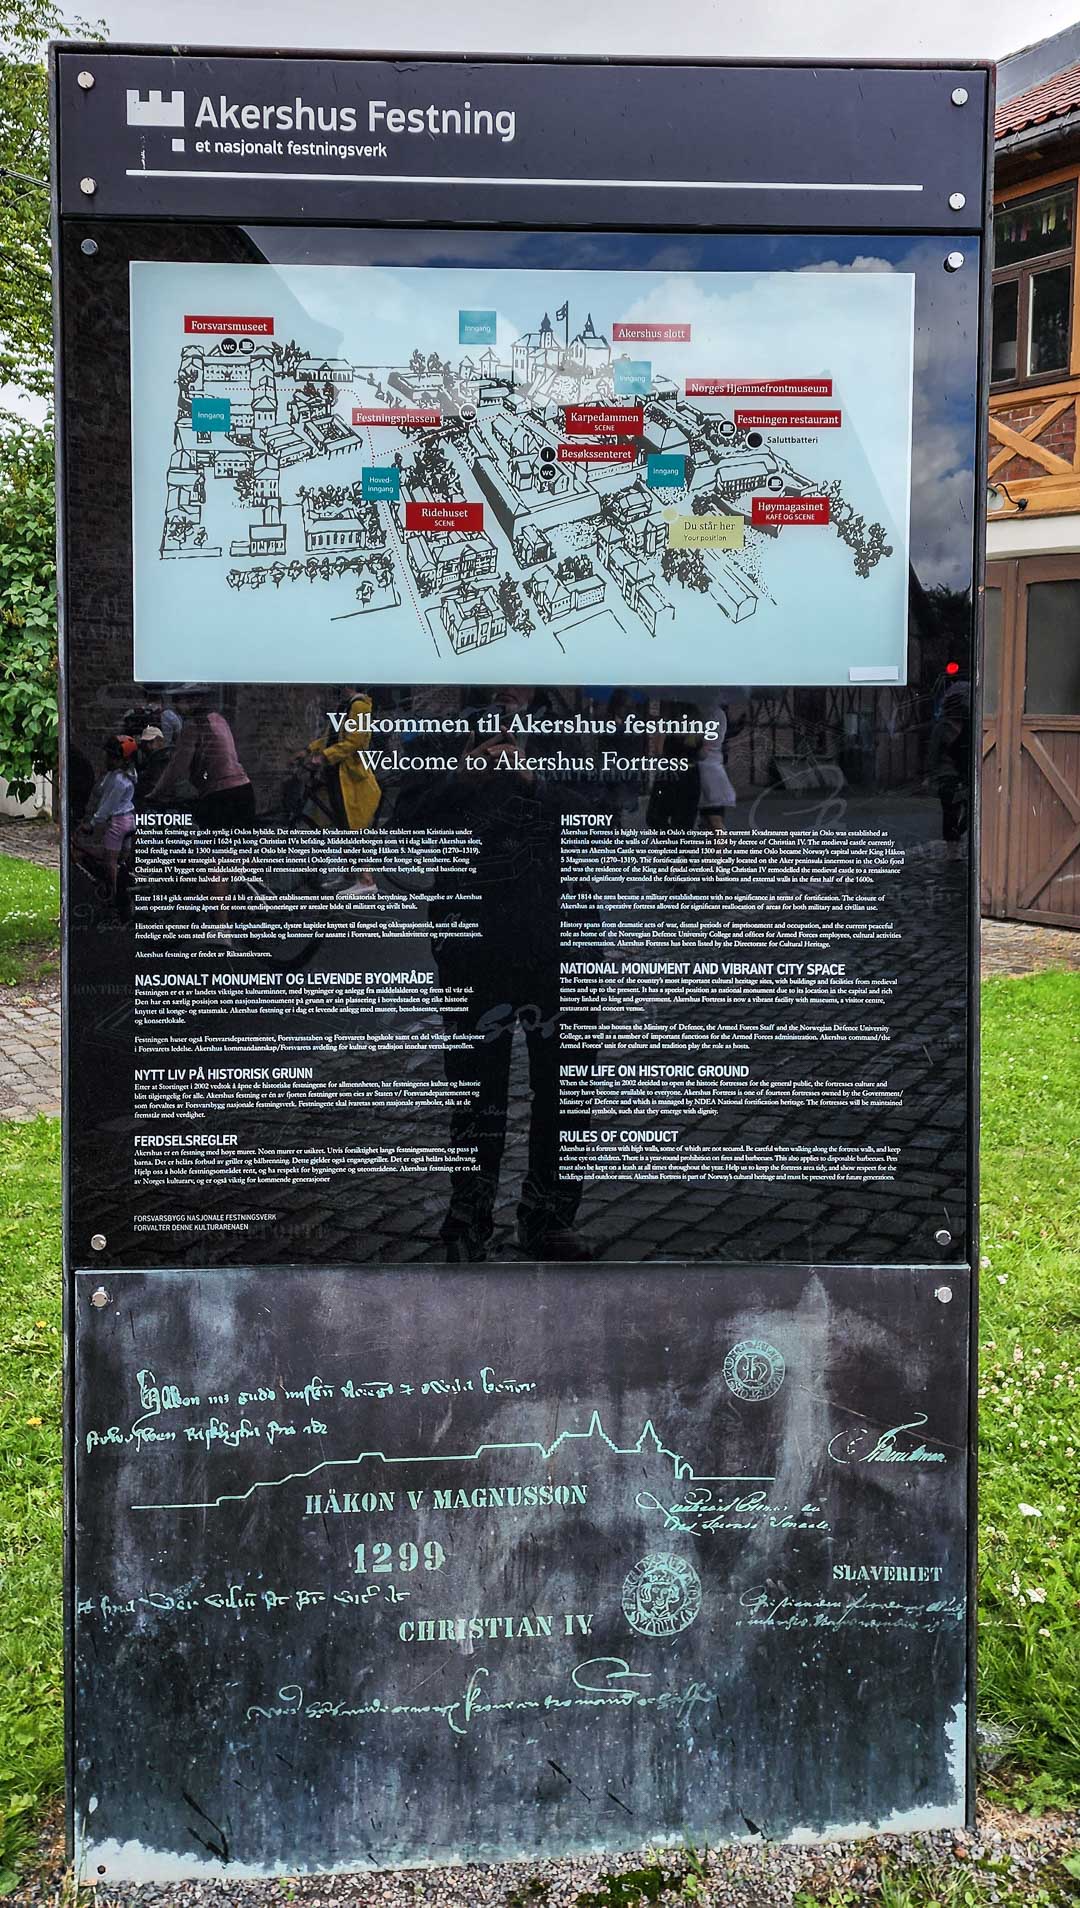 Akershus Festning
et nasjonalt festningsverk
Forsvarsmuseet
WC
Inngang
Akershus slott
Inngang
Norges Hjemmefrontmuseum
Inngang
Festningsplassen
WC
Karpedammen
SCENE
Festningen restaurant
Saluttbatteri
i
Besøkssenteret
WC
Inngang
Hoved-
inngang
Ridehuset
SCENE
Høymagasinet
KAFÉ OG SCENE
Du står her
Your position
Velkommen til Akershus festning
Welcome to Akershus Fortress
HISTORIE
Akershus festning er godt synlig i Oslos bybilde. Det nåværende Kvadraturen i Oslo ble etablert som Kristiania under
Akershus festnings murer i 1624 på kong Christian IVs befaling. Middelalderborgen som vi i dag kaller Akershus slott,
stod ferdig rundt år 1300 samtidig med at Oslo ble Norges hovedstad under kong Håkon 5. Magnusson (1270–1319).
Borganlegget var strategisk plassert på Akersneset innerst i Oslofjorden og residens for konge og lensherre. Kong
Christian IV bygget om middelalderborgen til renessanseslott og utvidet forsvarsverkene betydelig med bastioner og
ytre murverk i første halvdel av 1600-tallet.
Etter 1814 gikk området over til å bli et militært etablissement uten fortifikatorisk betydning. Nedleggelse av Akershus
som operativ festning åpnet for store omdisponeringer av arealer både til militært og sivilt bruk.
Historien spenner fra dramatiske krigshandlinger, dystre kapitler knyttet til fengsel og okkupasjonstid, samt til dagens
fredelige rolle som sted for Forsvarets høyskole og kontorer for ansatte i Forsvaret, kulturaktiviteter og representasjon.
Akershus festning er fredet av Riksantikvaren.
NASJONALT MONUMENT OG LEVENDE BYOMRÅDE
Festningen er et av landets viktigste kulturminner, med bygninger og anlegg fra middelalderen og frem til vår tid.
Den har en særlig posisjon som nasjonalmonument på grunn av sin plassering i hovedstaden og rike historie
knyttet til konge- og statsmakt. Akershus festning er i dag et levende anlegg med museer, besøkssenter, restaurant
og konsertlokale.
Festningen huser også Forsvarsdepartementet, Forsvarsstaben og Forsvarets høgskole samt en del viktige funksjoner
i Forsvarets ledelse. Akershus kommandantskap/Forsvarets avdeling for kultur og tradisjon innehar vertskapsrollen.
NYTT LIV PÅ HISTORISK GRUNN
Etter at Stortinget i 2002 vedtok å åpne de historiske festningene for allmennheten, har festningenes kultur og historie
blitt tilgjengelig for alle. Akershus festning er én av fjorten festninger som eies av Staten v/ Forsvarsdepartementet og
som forvaltes av Forsvarsbygg nasjonale festningsverk. Festningene skal ivaretas som nasjonale symboler, slik at de
fremstår med verdighet.
FERDSELSREGLER
Akershus er en festning med høye murer. Noen murer er usikret. Utvis forsiktighet langs festningsmurene, og pass på
barna. Det er helårs forbud av griller og bålbrenning. Dette gjelder også engangsgriller. Det er også helårs båndtvang.
Hjelp oss å holde festningsområdet rent, og ha respekt for bygningene og uteområdene. Akershus festning er en del
av Norges kulturarv, og er også viktig for kommende generasjoner
FORSVARSBYGG NASJONALE FESTNINGSVERK
FORVALTER DENNE KULTURARENAEN
HISTORY
Akershus Fortress is highly visible in Oslo's cityscape. The current Kvadraturen quarter in Oslo was established as
Kristiania outside the walls of Akershus Fortress in 1624 by decree of Christian IV. The medieval castle currently
known as Akershus Castle was completed around 1300 at the same time Oslo became Norway's capital under King Håkon
5 Magnusson (1270–1319). The fortification was strategically located on the Aker peninsula innermost in the Oslo fjord
and was the residence of the King and feudal overlord. King Christian IV remodelled the medieval castle to a renaissance
palace and significantly extended the fortifications with bastions and external walls in the first half of the 1600s.
After 1814 the area became a military establishment with no significance in terms of fortification. The closure of
Akershus as an operative fortress allowed for significant reallocation of areas for both military and civilian use.
History spans from dramatic acts of war, dismal periods of imprisonment and occupation, and the current peaceful
role as home of the Norwegian Defence University College and offices for Armed Forces employees, cultural activities
and representation. Akershus Fortress has been listed by the Directorate for Cultural Heritage.
NATIONAL MONUMENT AND VIBRANT CITY SPACE
The Fortress is one of the country's most important cultural heritage sites, with buildings and facilities from medieval
times and up to the present. It has a special position as national monument due to its location in the capital and rich
history linked to king and government. Akershus Fortress is now a vibrant facility with museums, a visitor centre,
restaurant and concert venue.
The Fortress also houses the Ministry of Defence, the Armed Forces Staff and the Norwegian Defence University
College, as well as a number of important functions for the Armed Forces administration. Akershus command/the
Armed Forces' unit for culture and tradition play the role as hosts.
NEW LIFE ON HISTORIC GROUND
When the Storting in 2002 decided to open the historic fortresses for the general public, the fortresses culture and
history have become available to everyone. Akershus Fortress is one of fourteen fortresses owned by the Government/
Ministry of Defence and which is managed by NDEA National fortification heritage. The fortresses will be maintained
as national symbols, such that they emerge with dignity.
RULES OF CONDUCT
Akershus is a fortress with high walls, some of which are not secured. Be careful when walking along the fortress walls, and keep
a close eye on children. There is a year-round prohibition on fires and barbecues. This also applies to disposable barbecues. Pets
must also be kept on a leash at all times throughout the year. Help us to keep the fortress area tidy, and show respect for the
buildings and outdoor areas. Akershus Fortress is part of Norway's cultural heritage and must be preserved for future generations.
HÅKON V MAGNUSSON
1299
SLAVERIET
CHRISTIAN IV